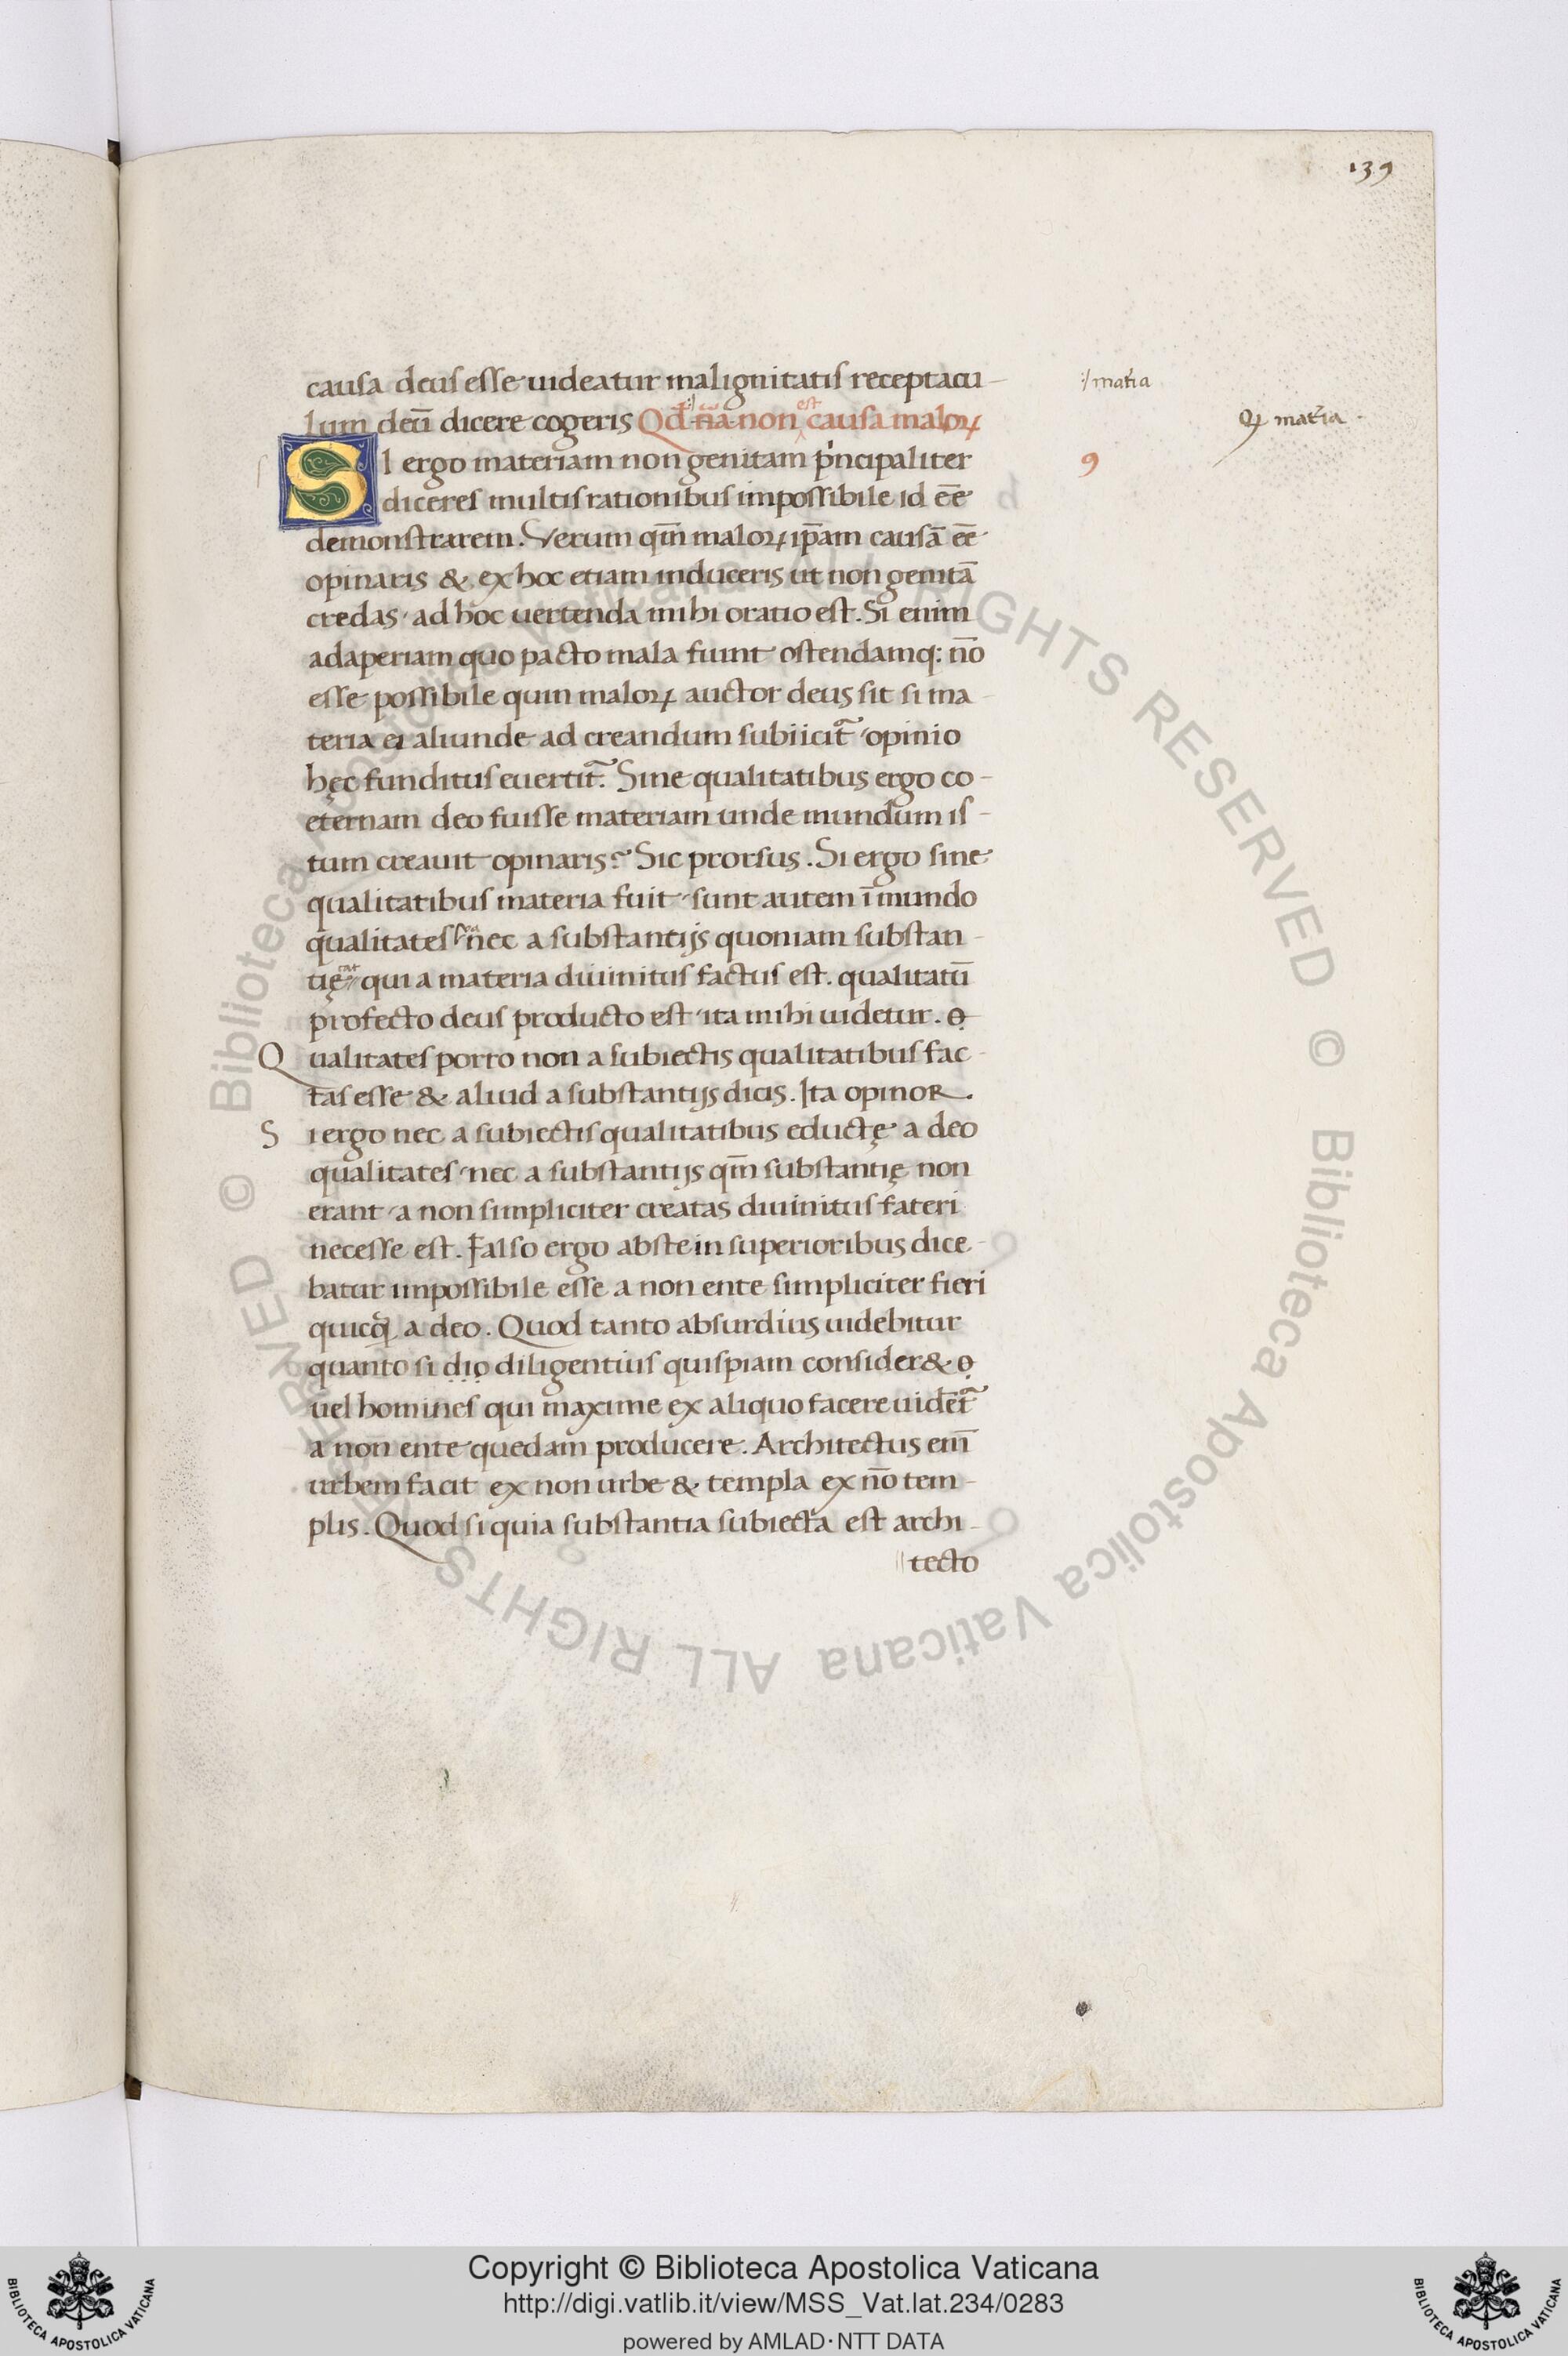 139
causa deus esse uideatur malignitatis receptacu-
lum deū dicere cogeris Qd̄ n̄a non est causa maloꝝ
:/ mat̄ia
Qꝫ mat̄ia
SI ergo materiam non genitam p̍ncipaliter
9
diceres multis rationibus impossibile id eē
demonstrarem. Verum qm̄ maloꝝ ip̄am causā eē
opinaris & ex hoc etiam induceris ut non genitā
credas, ad hoc uertenda mihi oratio est. Si enim
adaperiam quo pacto mala fiunt ostendamq: nō
esse possibile quin maloꝝ auctor deus sit si ma-
teria ei aliunde ad creandum subiicit᷑ opinio
hęc funditus euertit᷑. Sine qualitatibus ergo co-
eternam deo fuisse materiam unde mundum is-
tum creauit opinaris? Sic prorsus. Si ergo sine
qualitatibus materia fuit, sunt autem ī mundo
qualitates nec a substantijs quoniam substan-
tię qui a materia diuinitus factus est. qualitatū
profecto deus producto est, ita mihi uidetur. ꝙ
Qualitates porro non a subiectis qualitatibus fac-
tas esse & aliud a substantijs dicis. Ita opinor.
Si ergo nec a subiectis qualitatibus eductę a deo
qualitates, nec a substantijs qm̄ substantię non
erant, a non simpliciter creatas diuinitus fateri
necesse est. Falso ergo abste in superioribus dice-
batur impossibile esse a non ente simpliciter fieri
quicq̄ a deo. Quod tanto absurdius uidebitur
quanto si dio diligentius quispiam consider& ꝙ
uel homines qui maxime ex aliquo facere uident᷑
a non ente quedam producere. Architectus em̄
urbem facit ex non urbe & templa ex nō tem-
plis. Quod si quia substantia subiecta est archi-
tecto
© Biblioteca Apostolica Vaticana ALL RIGHTS RESERVED © Biblioteca Apostolica Vaticana ALL RIGHTS RESERVED
Copyright © Biblioteca Apostolica Vaticana
http://digi.vatlib.it/view/MSS_Vat.lat.234/0283
powered by AMLAD·NTT DATA
BIBLIOTECA APOSTOLICA VATICANA
BIBLIOTECA APOSTOLICA VATICANA